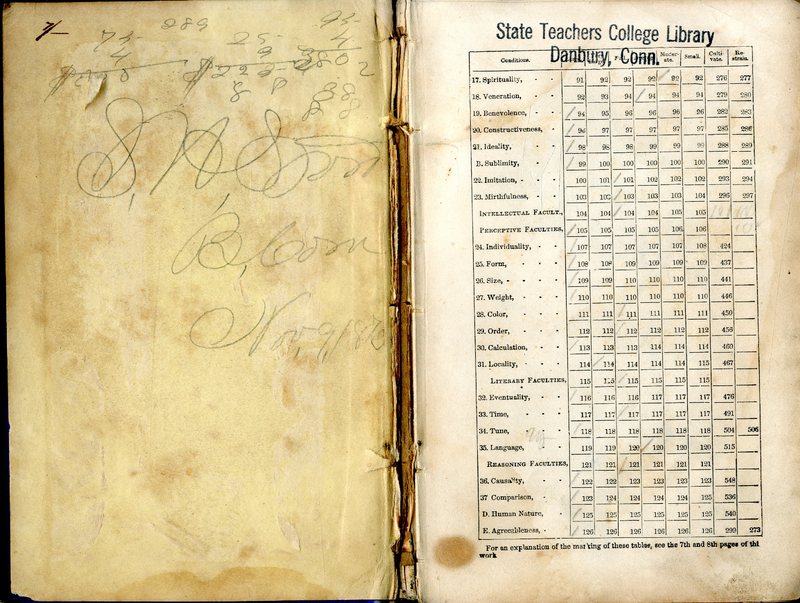 State Teachers College Library
Danbury, Conn.
Conditions. Moder-ate. Small. Culti-vate. Re-strain.
17. Spirituality, - - 91 92 92 92 92 92 276 277
18. Veneration, - - - 92 93 94 94 94 94 279 280
19. Benevolence, - - 94 95 96 96 96 96 282 283
20. Constructiveness, - 96 97 97 97 97 97 285 286
21. Ideality, - - 98 98 98 99 99 99 288 289
B. Sublimity, - - 99 100 100 100 100 100 290 291
22. Imitation, - - - 100 101 101 102 102 102 293 294
23. Mirthfulness, - - 103 103 103 103 103 104 296 297
INTELLECTUAL FACULT., 104 104 104 104 105 105
PERCEPTIVE FACULTIES, 105 105 105 105 106 106
24. Individuality, - - 107 107 107 107 107 108 424
25. Form, - - - 108 108 109 109 109 109 437
26. Size, - - - - 109 109 110 110 110 110 441
27. Weight, - - - 110 110 110 110 110 110 446
28. Color, - - - 111 111 111 111 111 111 450
29. Order, - - - 112 112 112 112 112 112 456
30. Calculation, - - 113 113 113 114 114 114 460
31. Locality, - - - 114 114 114 114 114 115 467
LITERARY FACULTIES, 115 115 115 115 115 115
32. Eventuality, - - 116 116 116 117 117 117 476
33. Time, - - - 117 117 117 117 117 117 491
34. Tune, - - - 118 118 118 118 118 118 504 506
35. Language, - - 119 119 120 120 120 120 515
REASONING FACULTIES, 121 121 121 121 121 121
36. Causality, - - 122 122 123 123 123 123 548
37 Comparison, - - 123 124 124 124 124 125 536
D. Human Nature, - 125 125 125 125 125 125 540
E. Agreeableness, - - 126 126 126 126 126 126 299 273
For an explanation of the marking of these tables, see the 7th and 8th pages of thi
work